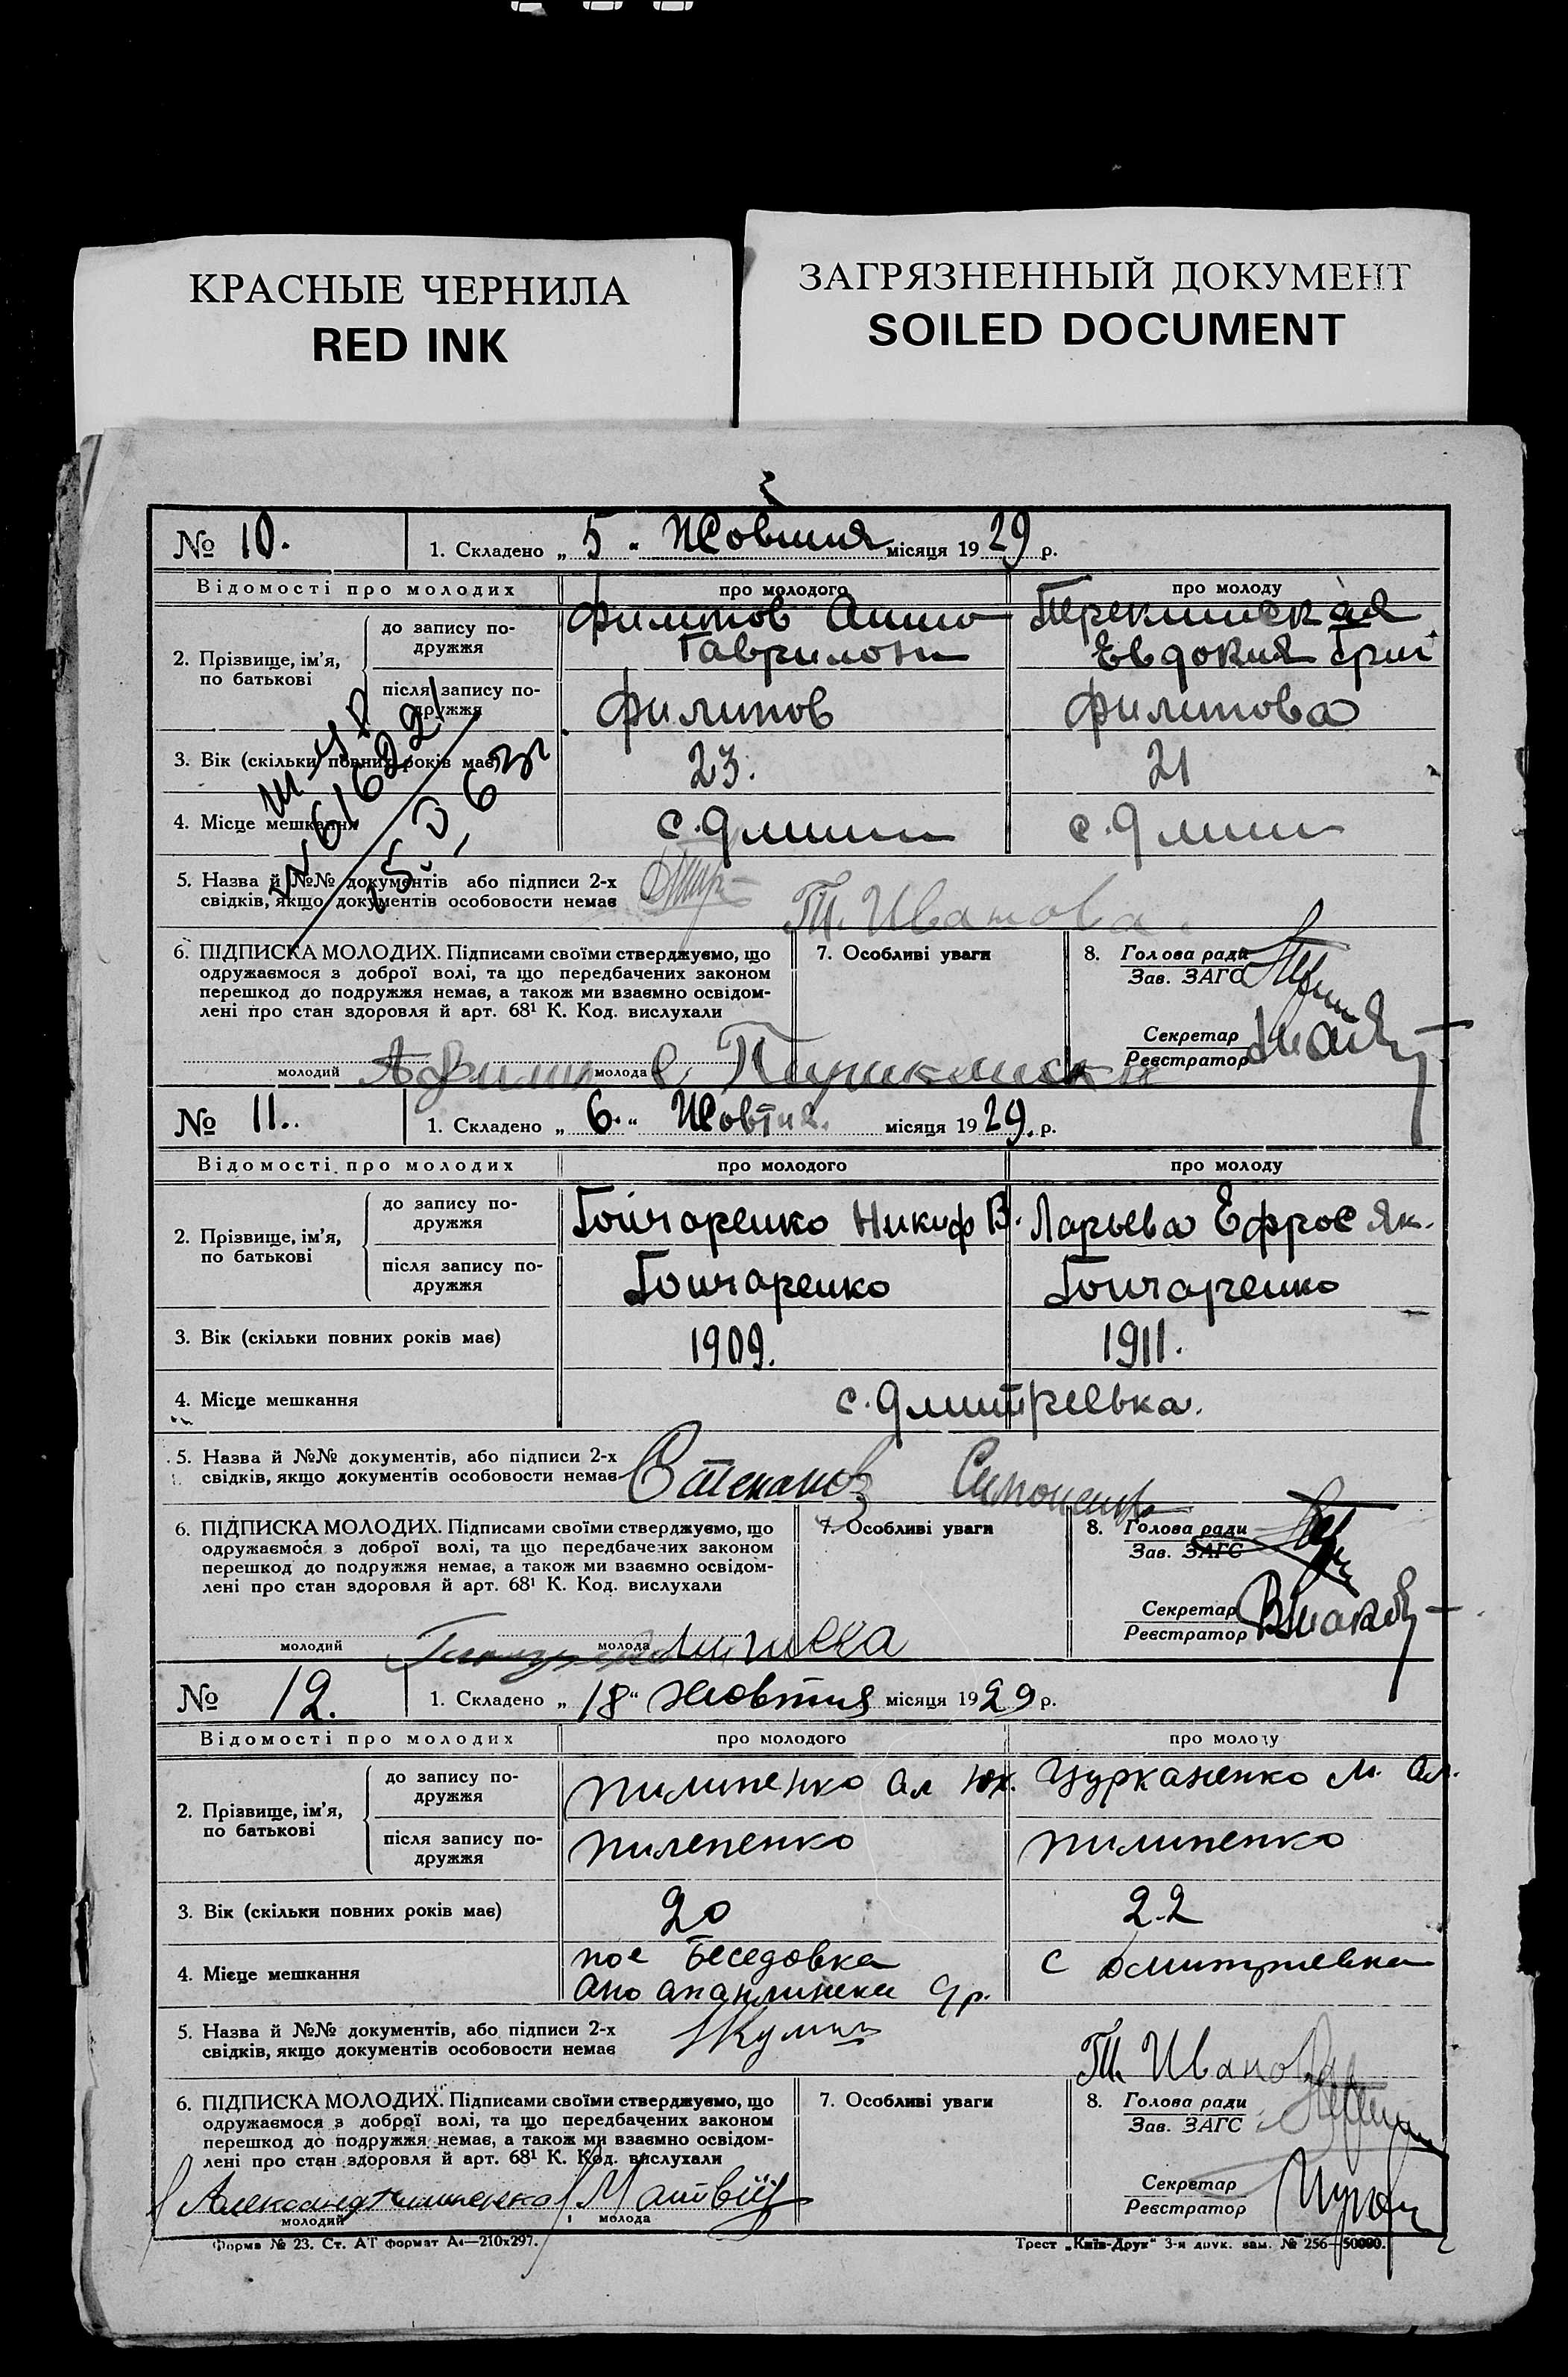 КРАСНЫЕ ЧЕРНИЛА
RED INK
ЗАГРЯЗНЕННЫЙ ДОКУМЕНТ
SOILED DOCUMENT
№ 10. 1. Складено „ 5 “ Жовтня місяця 1929 р.
Відомості про молодих про молодого про молоду
2. Прізвище, ім'я, по батькові
до запису подружжя Филипов Гаврилов Евдокия Григ.
після запису подружжя Филипов Филипова
3. Вік (скільки повних років має) 23. 21
4. Місце мешкання с. Дмит с. Дмит
5. Назва й №№ документів або підписи 2-х
свідків, якщо документів особовости немає Иванова
6. ПІДПИСКА МОЛОДИХ. Підписами своїми стверджуємо, що
одружаємося з доброї волі, та що передбачених законом
перешкод до подружжя немає, а також ми взаємно освідом-
лені про стан здоровля й арт. 68¹ К. Код. вислухали
7. Особливі уваги
8. Голова ради
Зав. ЗАГС
Секретар
Реєстратор
молодий молода
№ 11. 1. Складено „ 6. “ Жовтня. місяця 1929. р.
Відомості про молодих про молодого про молоду
2. Прізвище, ім'я, по батькові
до запису подружжя Гончаренко Никиф В. Ларьева Ефрос Як.
після запису подружжя Гончаренко Гончаренко
3. Вік (скільки повних років має) 1909. 1911.
4. Місце мешкання с. Дмитриевка.
5. Назва й №№ документів, або підписи 2-х
свідків, якщо документів особовости немає Степанов
6. ПІДПИСКА МОЛОДИХ. Підписами своїми стверджуємо, що
одружаємося з доброї волі, та що передбачених законом
перешкод до подружжя немає, а також ми взаємно освідом-
лені про стан здоровля й арт. 68¹ К. Код. вислухали
7. Особливі уваги
8. Голова ради
Зав. ЗАГС
Секретар
Реєстратор
молодий молода
№ 12. 1. Складено „ 18 “ жовтня місяця 1929 р.
Відомості про молодих про молодого про молоду
2. Прізвище, ім'я, по батькові
до запису подружжя пилипенко Ал Юх. Цурканенко М. Ал.
після запису подружжя пилепенко пилипенко
3. Вік (скільки повних років має) 20 22
4. Місце мешкання пос Беседовка с Дмитриевка
5. Назва й №№ документів, або підписи 2-х
свідків, якщо документів особовости немає Иванова
6. ПІДПИСКА МОЛОДИХ. Підписами своїми стверджуємо, що
одружаємося з доброї волі, та що передбачених законом
перешкод до подружжя немає, а також ми взаємно освідом-
лені про стан здоровля й арт. 68¹ К. Код. вислухали
7. Особливі уваги
8. Голова ради
Зав. ЗАГС
Секретар
Реєстратор
молодий молода
Форма № 23. Ст. АТ формат А4—210х297.
Трест „Київ-Друк“ 3-я друк. зам. № 256—50000.